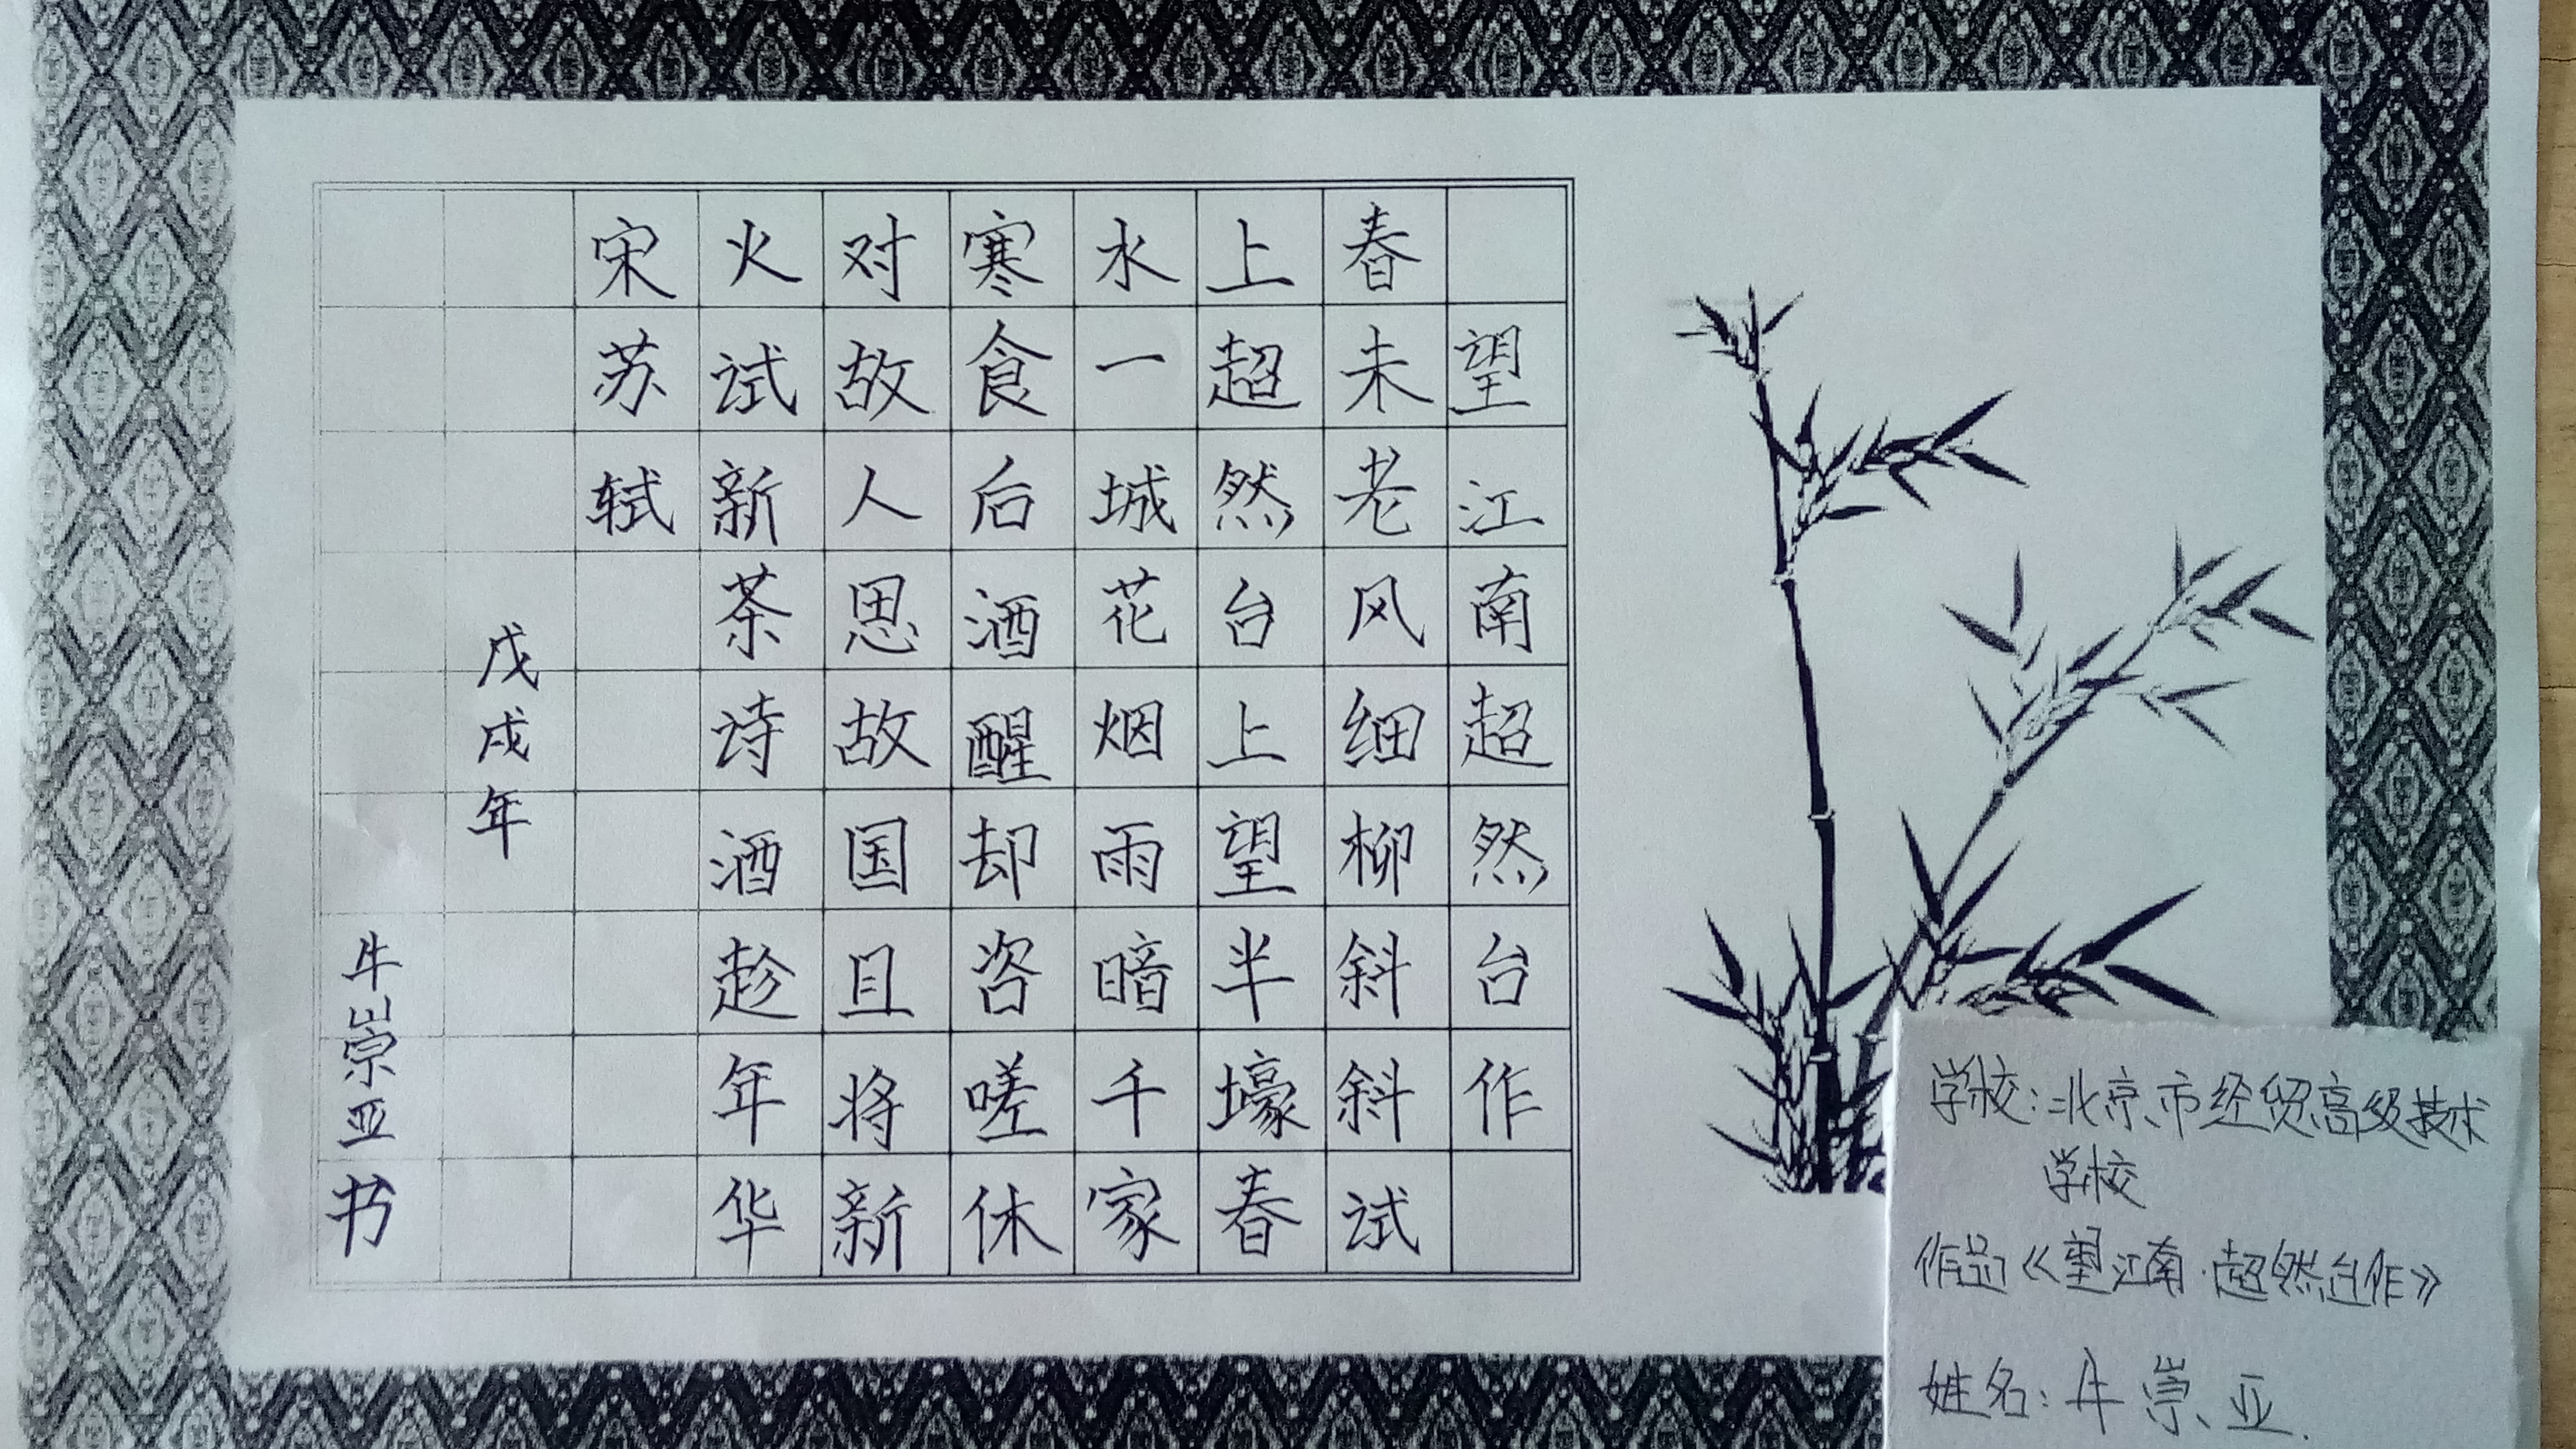 望江南超然台作
春未老风细柳斜斜试
上超然台上望半壕春
水一城花烟雨暗千家
寒食后酒醒却咨嗟休
对故人思故国且将新
火试新茶诗酒趁年华
宋苏轼
戊戌年
牛崇亚书
学校：北京市经贸高级技术
学校
作品《望江南·超然台作》
姓名：牛崇亚.